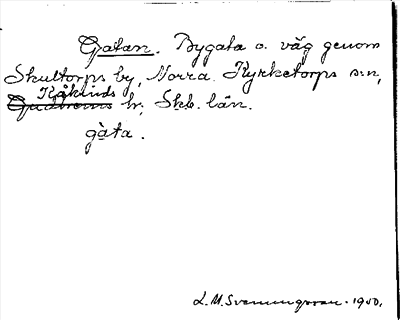 Gatan. Bygata o. väg genom
Skultorps by, Norra Kyrketorps sn,
Kåkinds
Gudhems hr, Skb. län.
gàta.
L. M. Svenungsson. 1950.